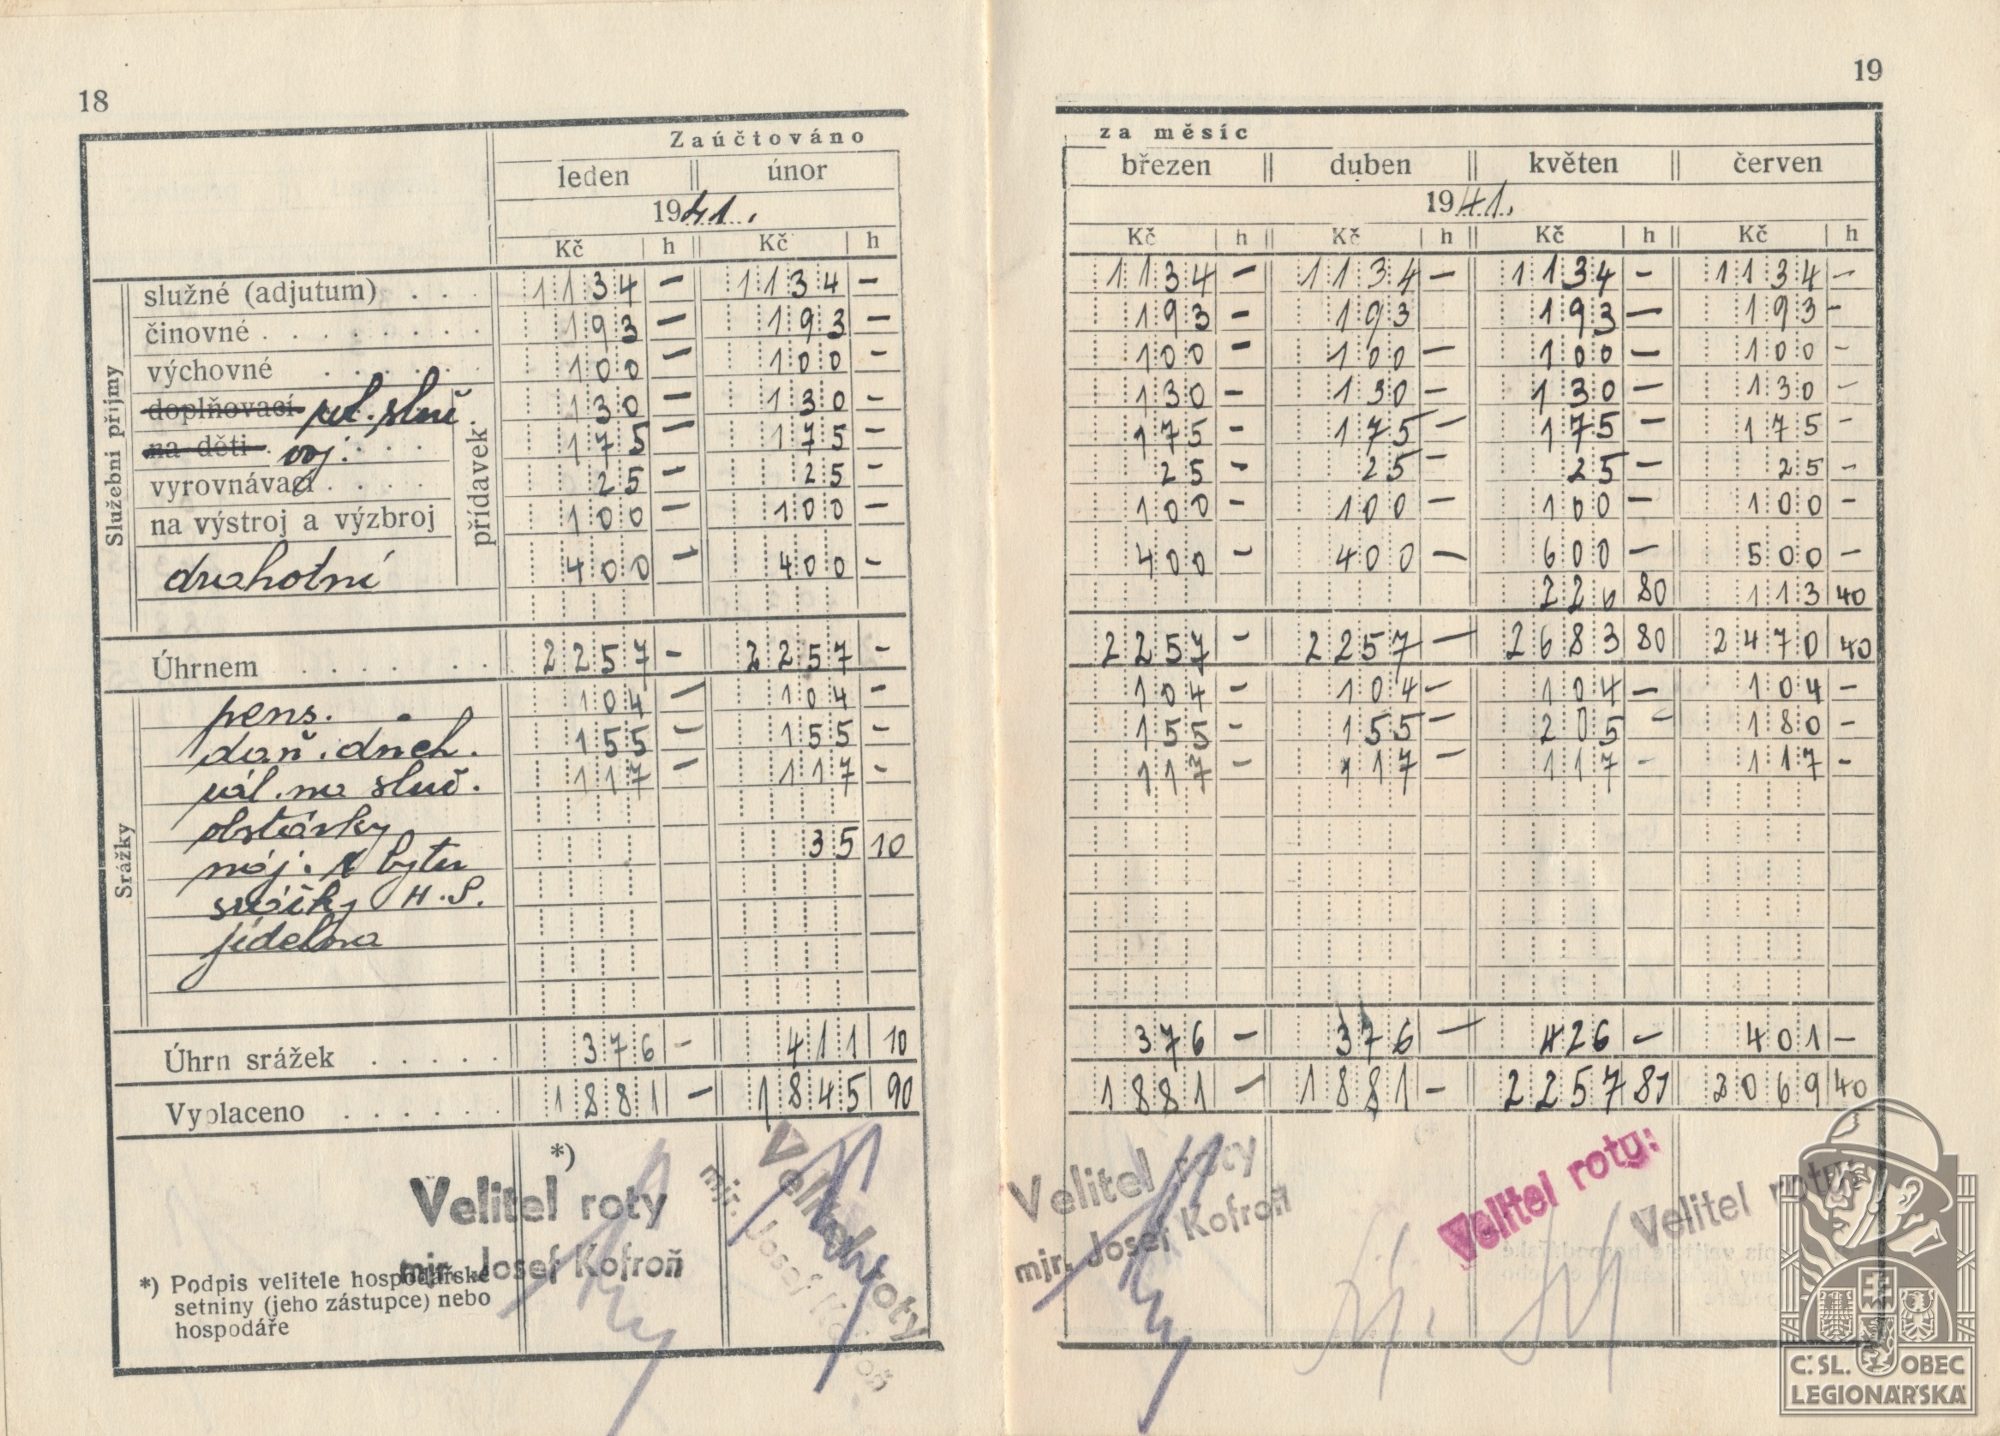 18
Zaúčtováno
leden únor
1941.
Kč h Kč h
Služební příjmy
služné (adjutum) . . . 1134 — 1134 —
činovné . . . . . . . . 193 — 193 —
výchovné . . . . . . 100 — 100 —
doplňovací 130 — 130 —
na děti . voj. . . . 175 — 175 —
vyrovnávací . . . . 25 — 25 —
na výstroj a výzbroj 100 — 100 —
přídavek:
drahotní 400 — 400 —
Úhrnem . . . . . . . 2257 — 2257 —
Srážky
pens. 104 — 104 —
daň. důch. 155 — 155 —
vál. na služ. 117 — 117 —
obstávky
náj. z bytu 35 10
srážky H.S.
jídelna
Úhrn srážek . . . . . 376 — 411 10
Vyplaceno . . . . . . 1881 — 1845 90
*)
Velitel roty
mjr. Josef Kofroň
Velitel roty
mjr. Josef Kofroň
*) Podpis velitele hospodářské
setniny (jeho zástupce) nebo
hospodáře
19
za měsíc
březen duben květen červen
1941.
Kč h Kč h Kč h Kč h
1134 — 1134 — 1134 — 1134 —
193 — 193 193 — 193 —
100 — 100 — 100 — 100 —
130 — 130 — 130 — 130 —
175 — 175 — 175 — 175 —
25 — 25 — 25 — 25 —
100 — 100 — 100 — 100 —
400 — 400 — 600 — 500 —
226 80 113 40
2257 — 2257 — 2683 80 2470 40
104 — 104 — 104 — 104 —
155 — 155 — 205 — 180 —
117 — 117 — 117 — 117 —
376 — 376 — 426 — 401 —
1881 — 1881 — 2257 81 2069 40
Velitel roty
mjr. Josef Kofroň
Velitel roty:
Velitel roty:
Č.SL. OBEC
LEGIONÁŘSKÁ